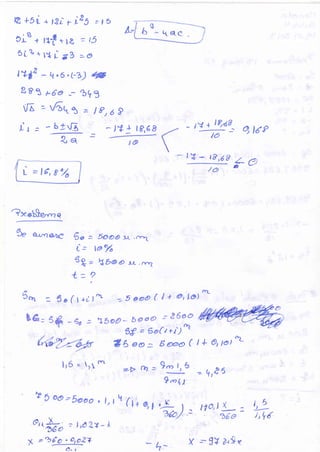 12 + 5i + 12i + i²5 = 15
5i² + 17i + 12 = 15
5i² + 17i - 3 = 0
Δ = b² - 4ac.
17² - 4·5·(-3)
289 + 60 = 349
√Δ = √349 = 18,68
i₁ = -b ± √Δ / 2a = -17 + 18,68 / 10
-17 + 18,68 / 10 = 0,168
-17 - 18,68 / 10 < 0
i = 16,8 %
Problema
So = 5000 u.m
i = 10%
Sf = 7500 u.m
t = ?
Sm = So(1+i)ⁿ = 5000(1 + 0,10)ⁿ
= Sf - So = 7500 - 5000 = 2500
Sf = So(1+i)ⁿ
7500 = 5000(1 + 0,10)ⁿ
1,5 = 1,1ⁿ
=> n = ln 1,5 / ln 1,1 = 4,25
7500 = 5000 · 1,1⁴ (1 + 0,1 · x/360)
1 + 0,1 x / 360 = 1,5 / 1,46
0,1 x / 360 = 1,027 - 1
x = 360 · 0,027 / 0,1
x = 97 zile
-4-